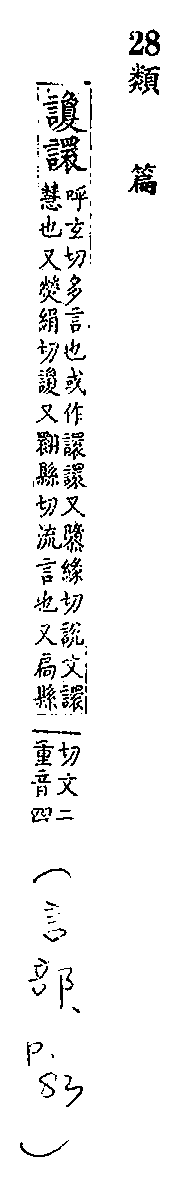 28
類 篇
諼譞
呼玄切多言也或作譞譞又隳緣切說文譞
慧也又熒絹切諼又翾縣切流言也又扃縣
切文二
重音四
(言部、
p.
83)